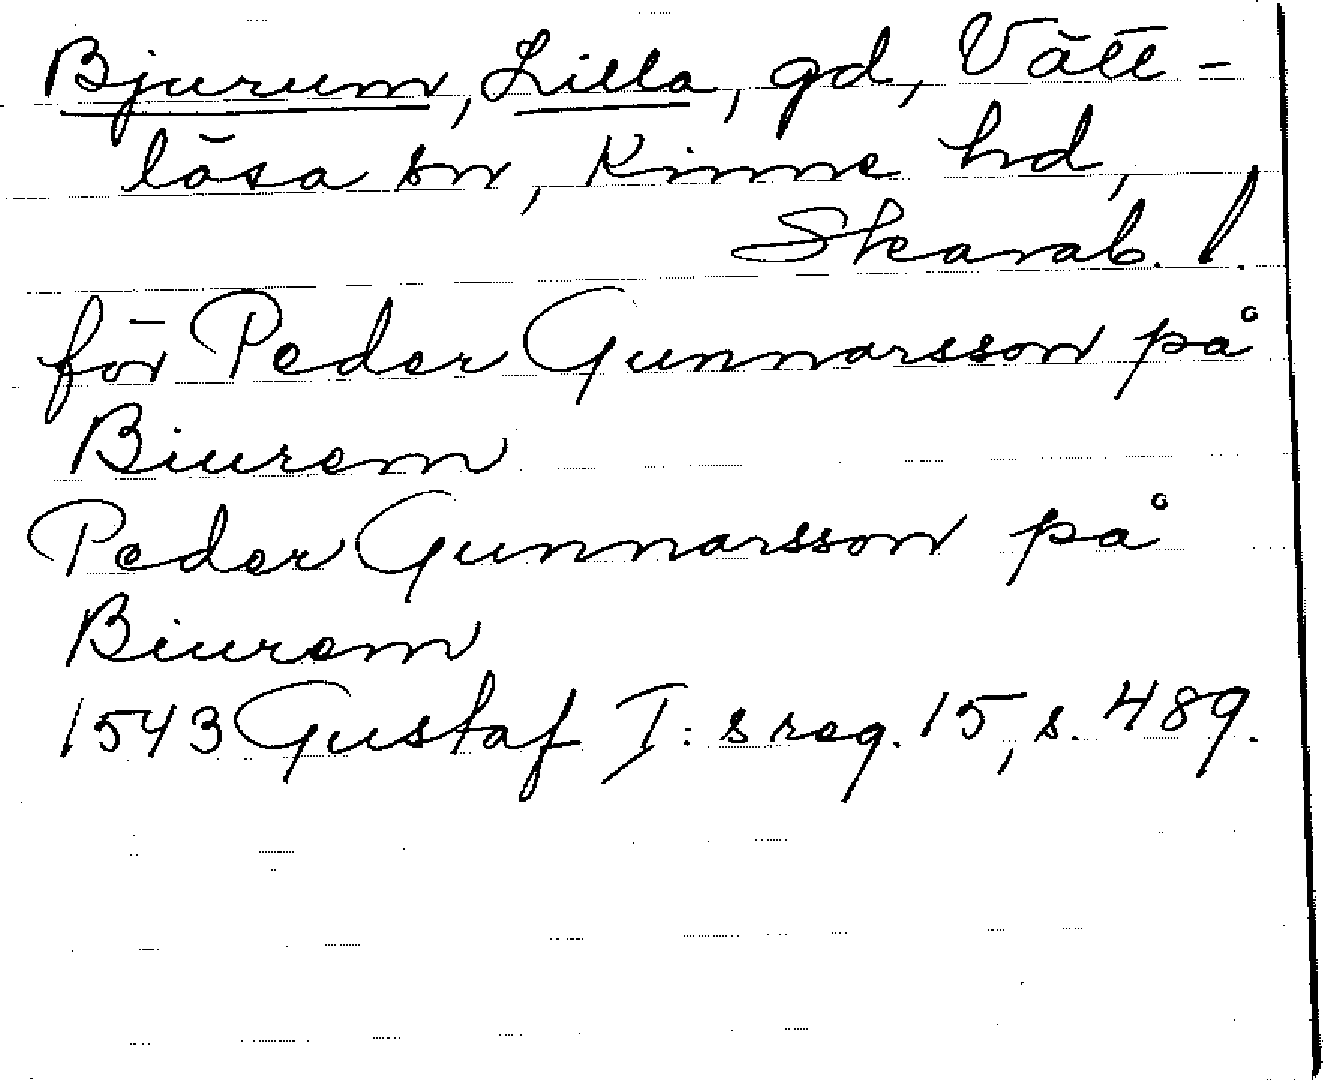 Bjurum, Lilla, gd, Vätt-
lösa sn, Kinne hd,
Skarab. l.
för Peder Gunnarsson på
Biurem
Peder Gunnarsson på
Biurem
1543 Gustaf I:s reg. 15, s. 489.